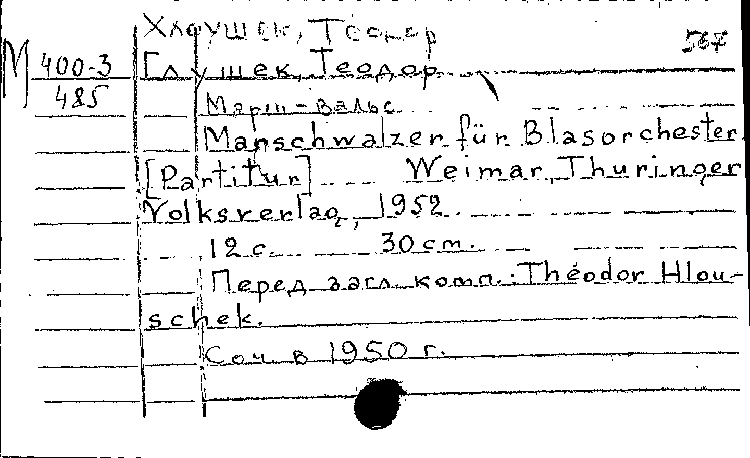 Хлоушек, Теодор
567
М 400-3
485
Глушек, Теодор
Марш-вальс
Marschwalzer für Blasorchester.
[Partitur] Weimar, Thuringer
Volksverlag, 1952.
12 с. 30 cm.
Перед загл. комп.: Theodor Hlou-
schek.
Соч. в 1950 г.